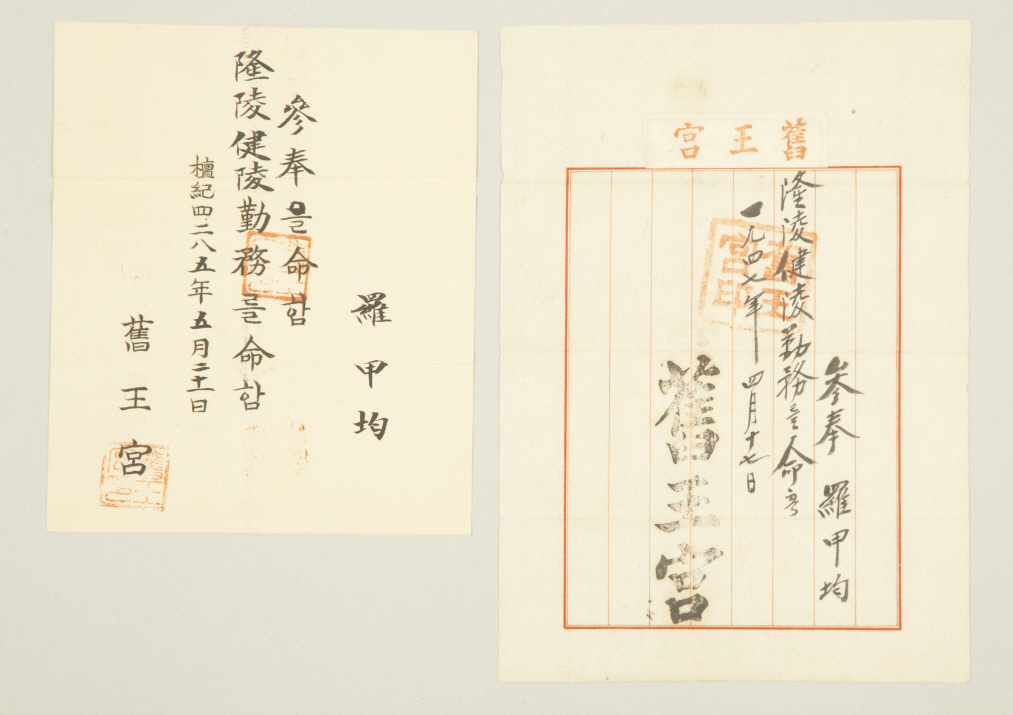 羅甲均
參奉을命함
隆陵健陵勤務를命함
檀紀四二八五年五月二十一日
舊王宮
舊王宮
參奉 羅甲均
隆陵健陵勤務를命함
一九四七年 四月十七日
舊王宮印
舊王宮